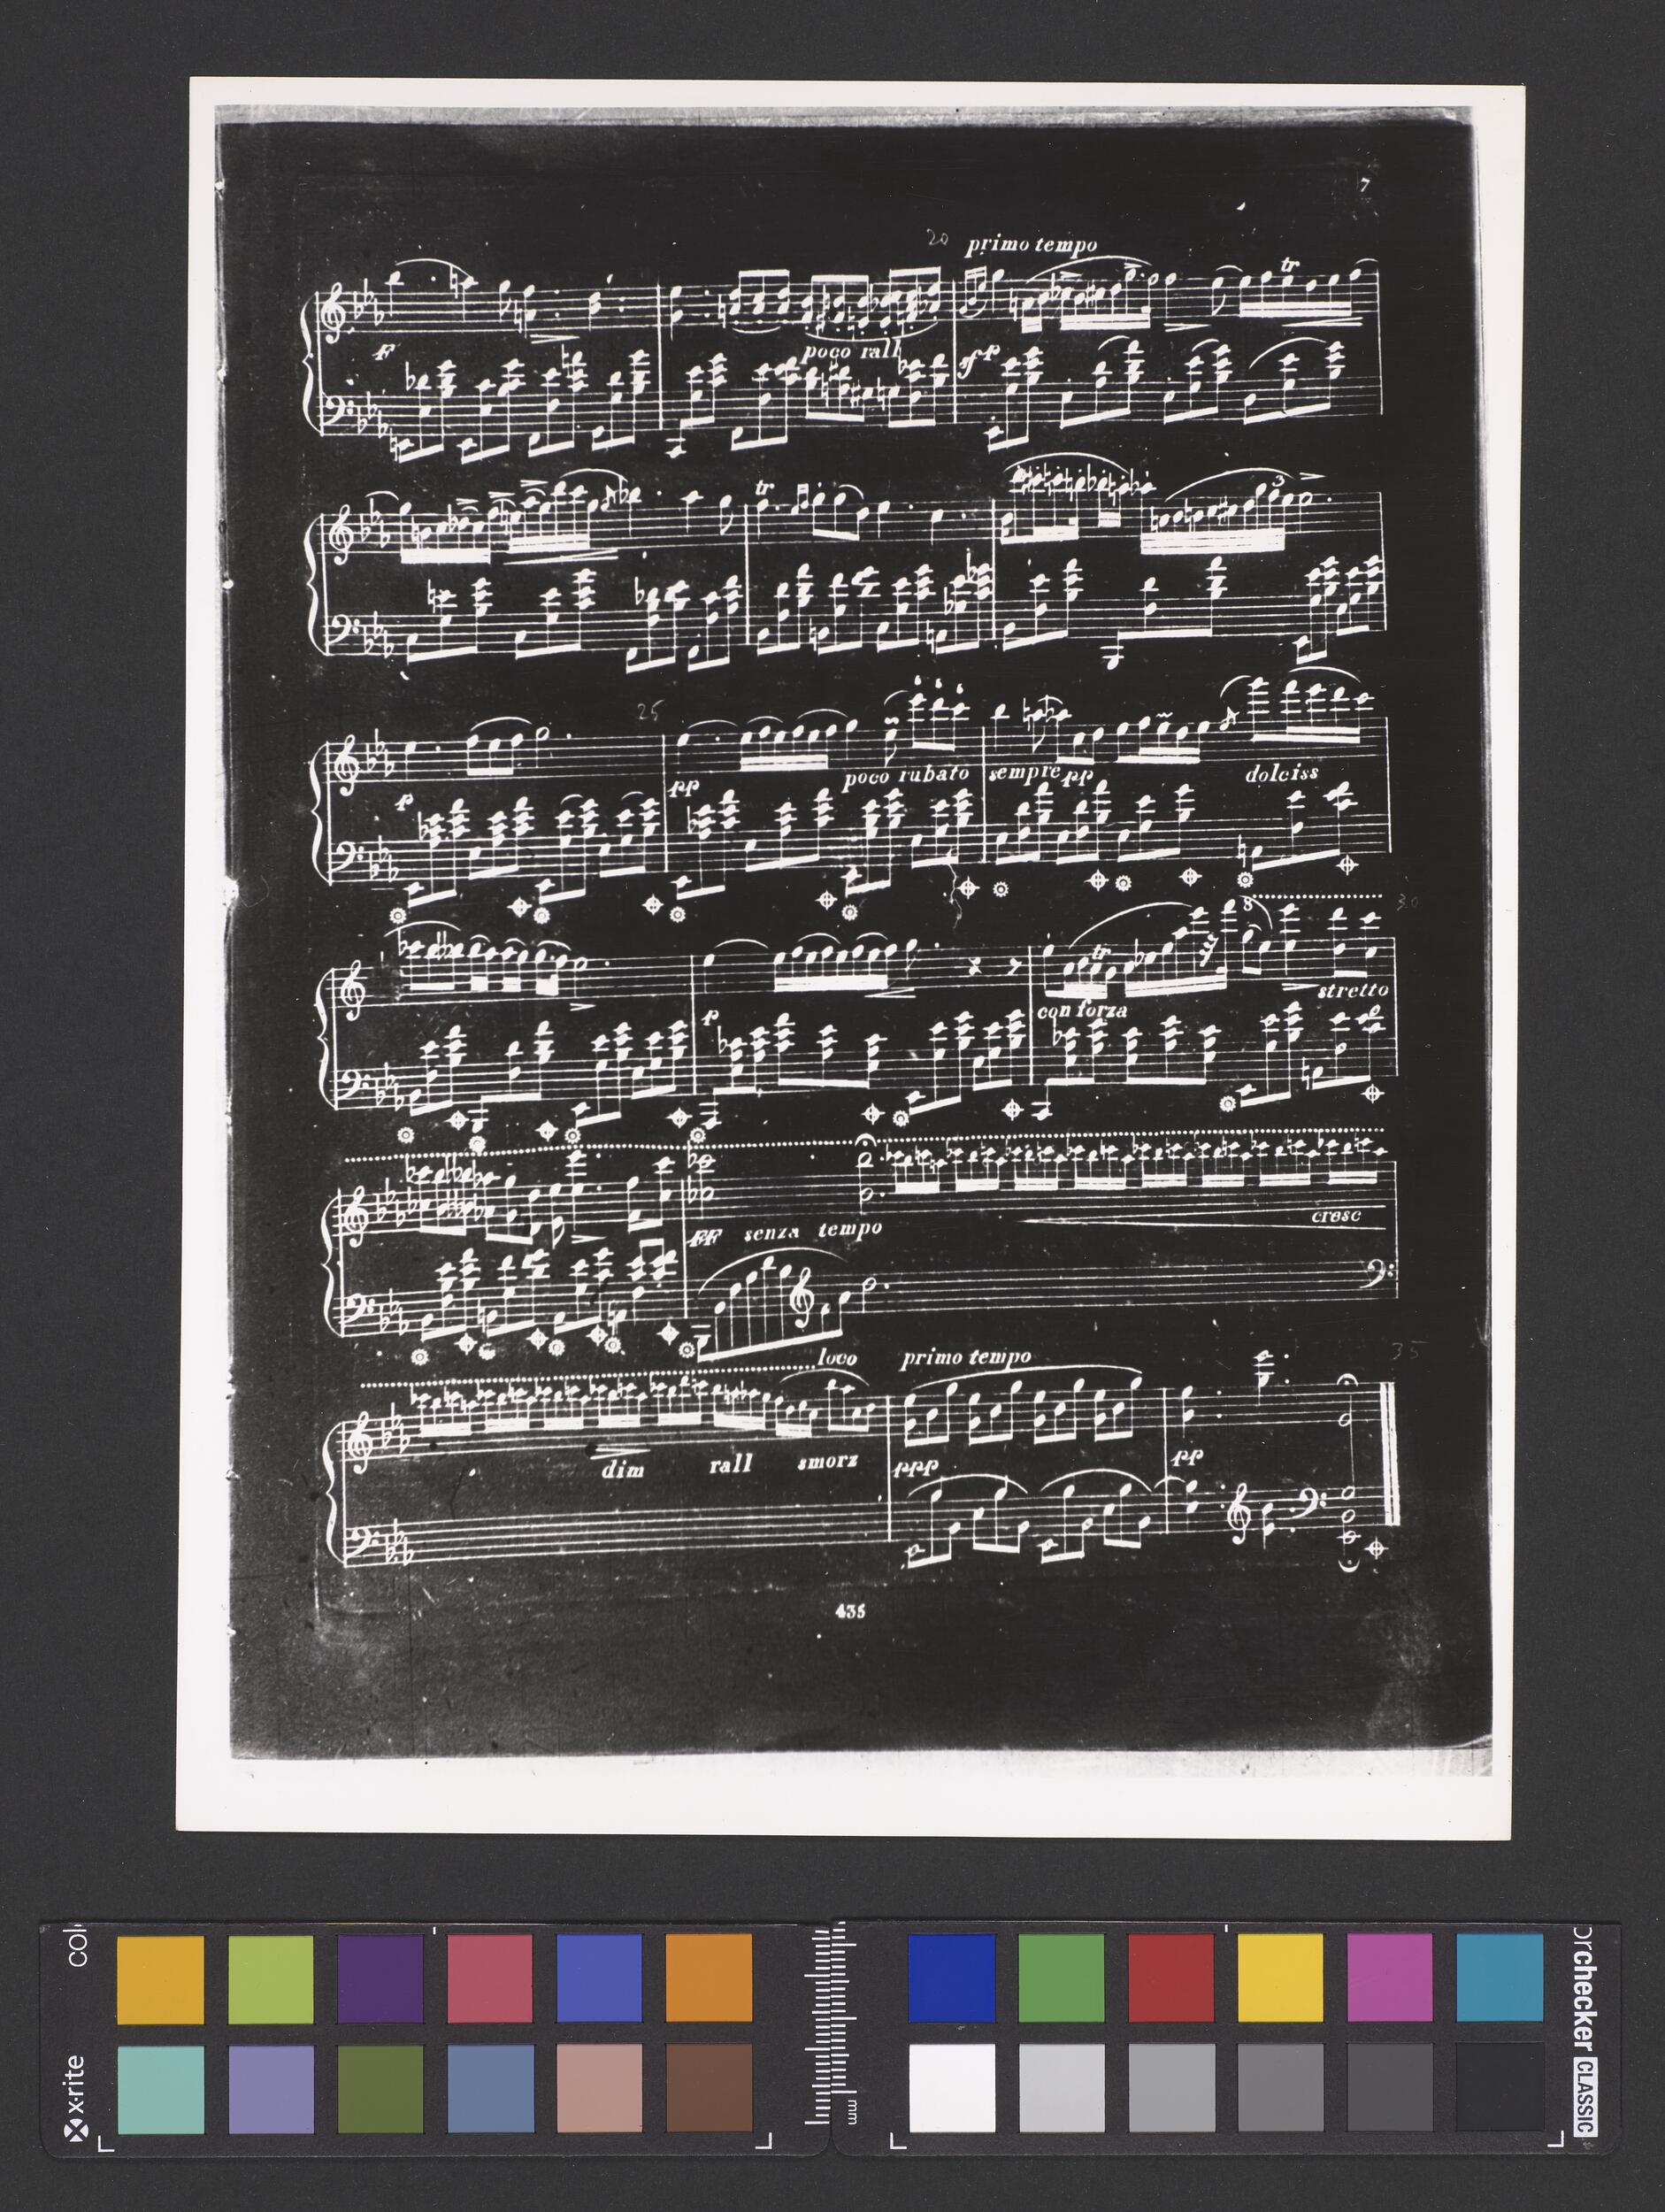 7
20 primo tempo
tr
F
poco rall
sf p
tr
3
25
p
pp
poco rubato
sempre pp
dolciss
30
8
tr
p
con forza
stretto
FF senza tempo
cresc
loco primo tempo
35
dim rall smorz
ppp
pp
435
x-rite
colo
mm
orchecker CLASSIC